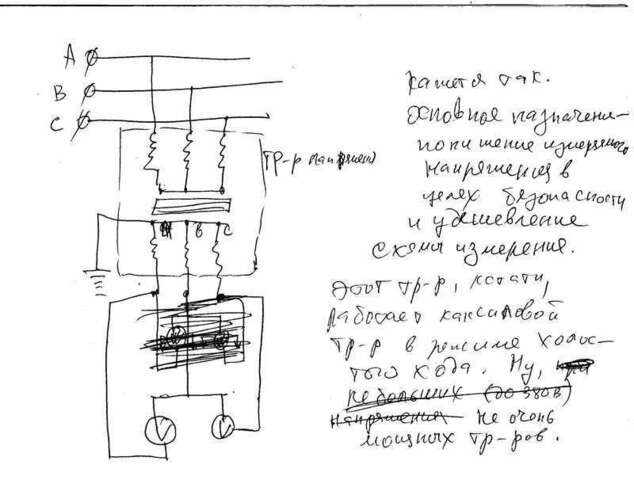 A
B
C
Тр-р напряжен
В С
V V
Кажется так.
Основное назначени-
понижение измеряемого
напряжения в
целях безопасности
и удешевление
схемы измерения.
Этот тр-р, кстати,
работает как силовой
тр-р в режиме холос-
того хода. Ну,
небольших (до 380В)
напряжения не очень
мощных тр-ров.